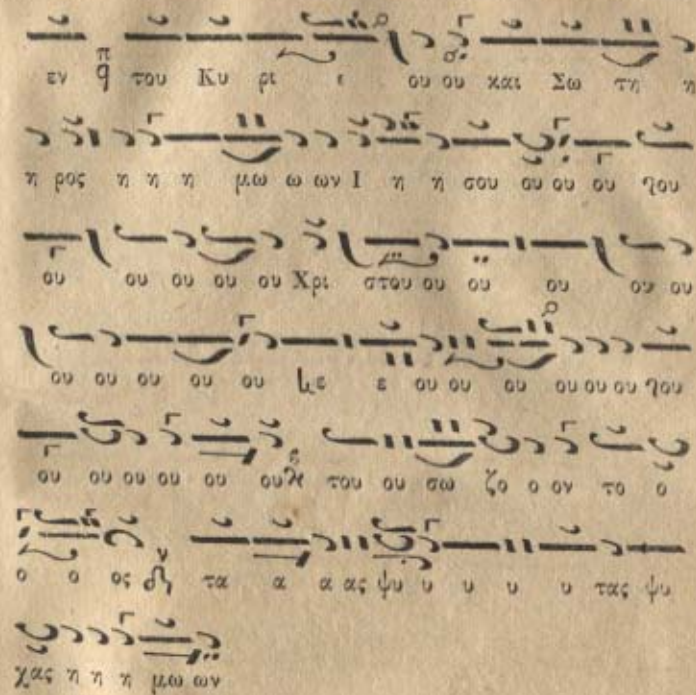 εν π̣ q του Κυ ρι ε ου ου και Σω τη η
η ρος η η η μω ω ων Ι η η σου ου ου ου 7ου
ου ου ου ου ου Χρι στου ου ου ου ου ου
ου ου ου ου ου κε ε ου ου ου ου ου ου 7ου
ου ου ου ου ου ου του ου σω ζο ο ον το ο
ο ο ος τα α α ας ψυ υ υ υ υ τας ψυ
χας η η η μω ων